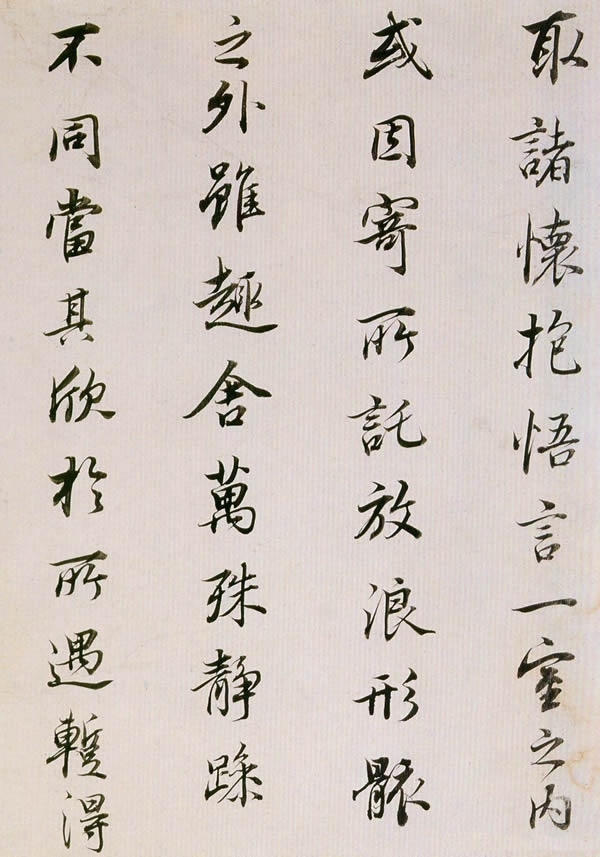 取諸懷抱悟言一室之內
或因寄所託放浪形骸
之外雖趣舍萬殊靜躁
不同當其欣於所遇蹔得